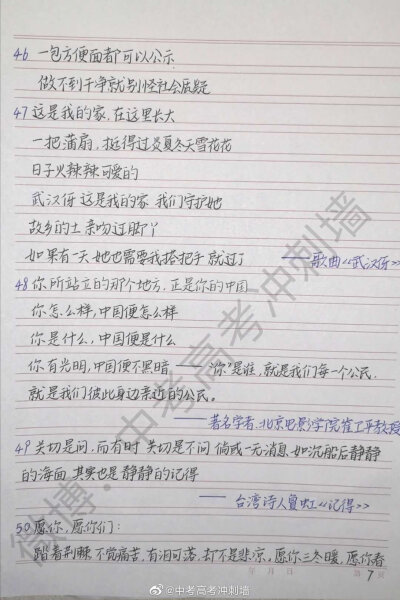 46 一包方便面都可以公示
做不到干净就别怪社会质疑
47 这是我的家,在这里长大
一把蒲扇,挺得过炎夏冬天雪花花
日子火辣辣可爱的
武汉伢 这是我的家 我们守护她
故乡的土 亲吻过脚丫
如果有一天 她也需要我搭把手 就过了
——歌曲《武汉伢》
48 你所站立的那个地方,正是你的中国
你怎么样,中国便怎么样
你是什么,中国便是什么
你有光明,中国便不黑暗——"你"是谁,就是我们每一个公民,
就是我们彼此身边亲近的公民。
——著名学者、北京电影学院崔卫平教授
49 关切是问,而有时 关切是不问 倘或一无消息 如沉船后静静
的海面 其实也是 静静的记得
——台湾诗人夐虹《记得》
50 愿你,愿你们:
踏着荆棘 不觉痛苦,有泪可落,却不是悲凉。愿你三冬暖,愿你春
年 月 日 第 7 页
微博:中考高考冲刺墙
@中考高考冲刺墙